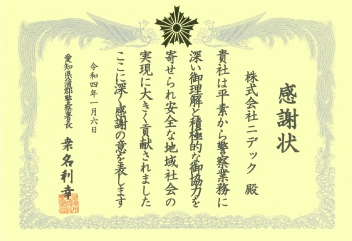 感謝状
株式会社ニデック 殿
貴社は平素から警察業務に
深い御理解と積極的な御協力を
寄せられ安全な地域社会の
実現に大きく貢献されました
ここに深く感謝の意を表します
令和四年一月六日
愛知県蒲郡警察署長 桑名利幸